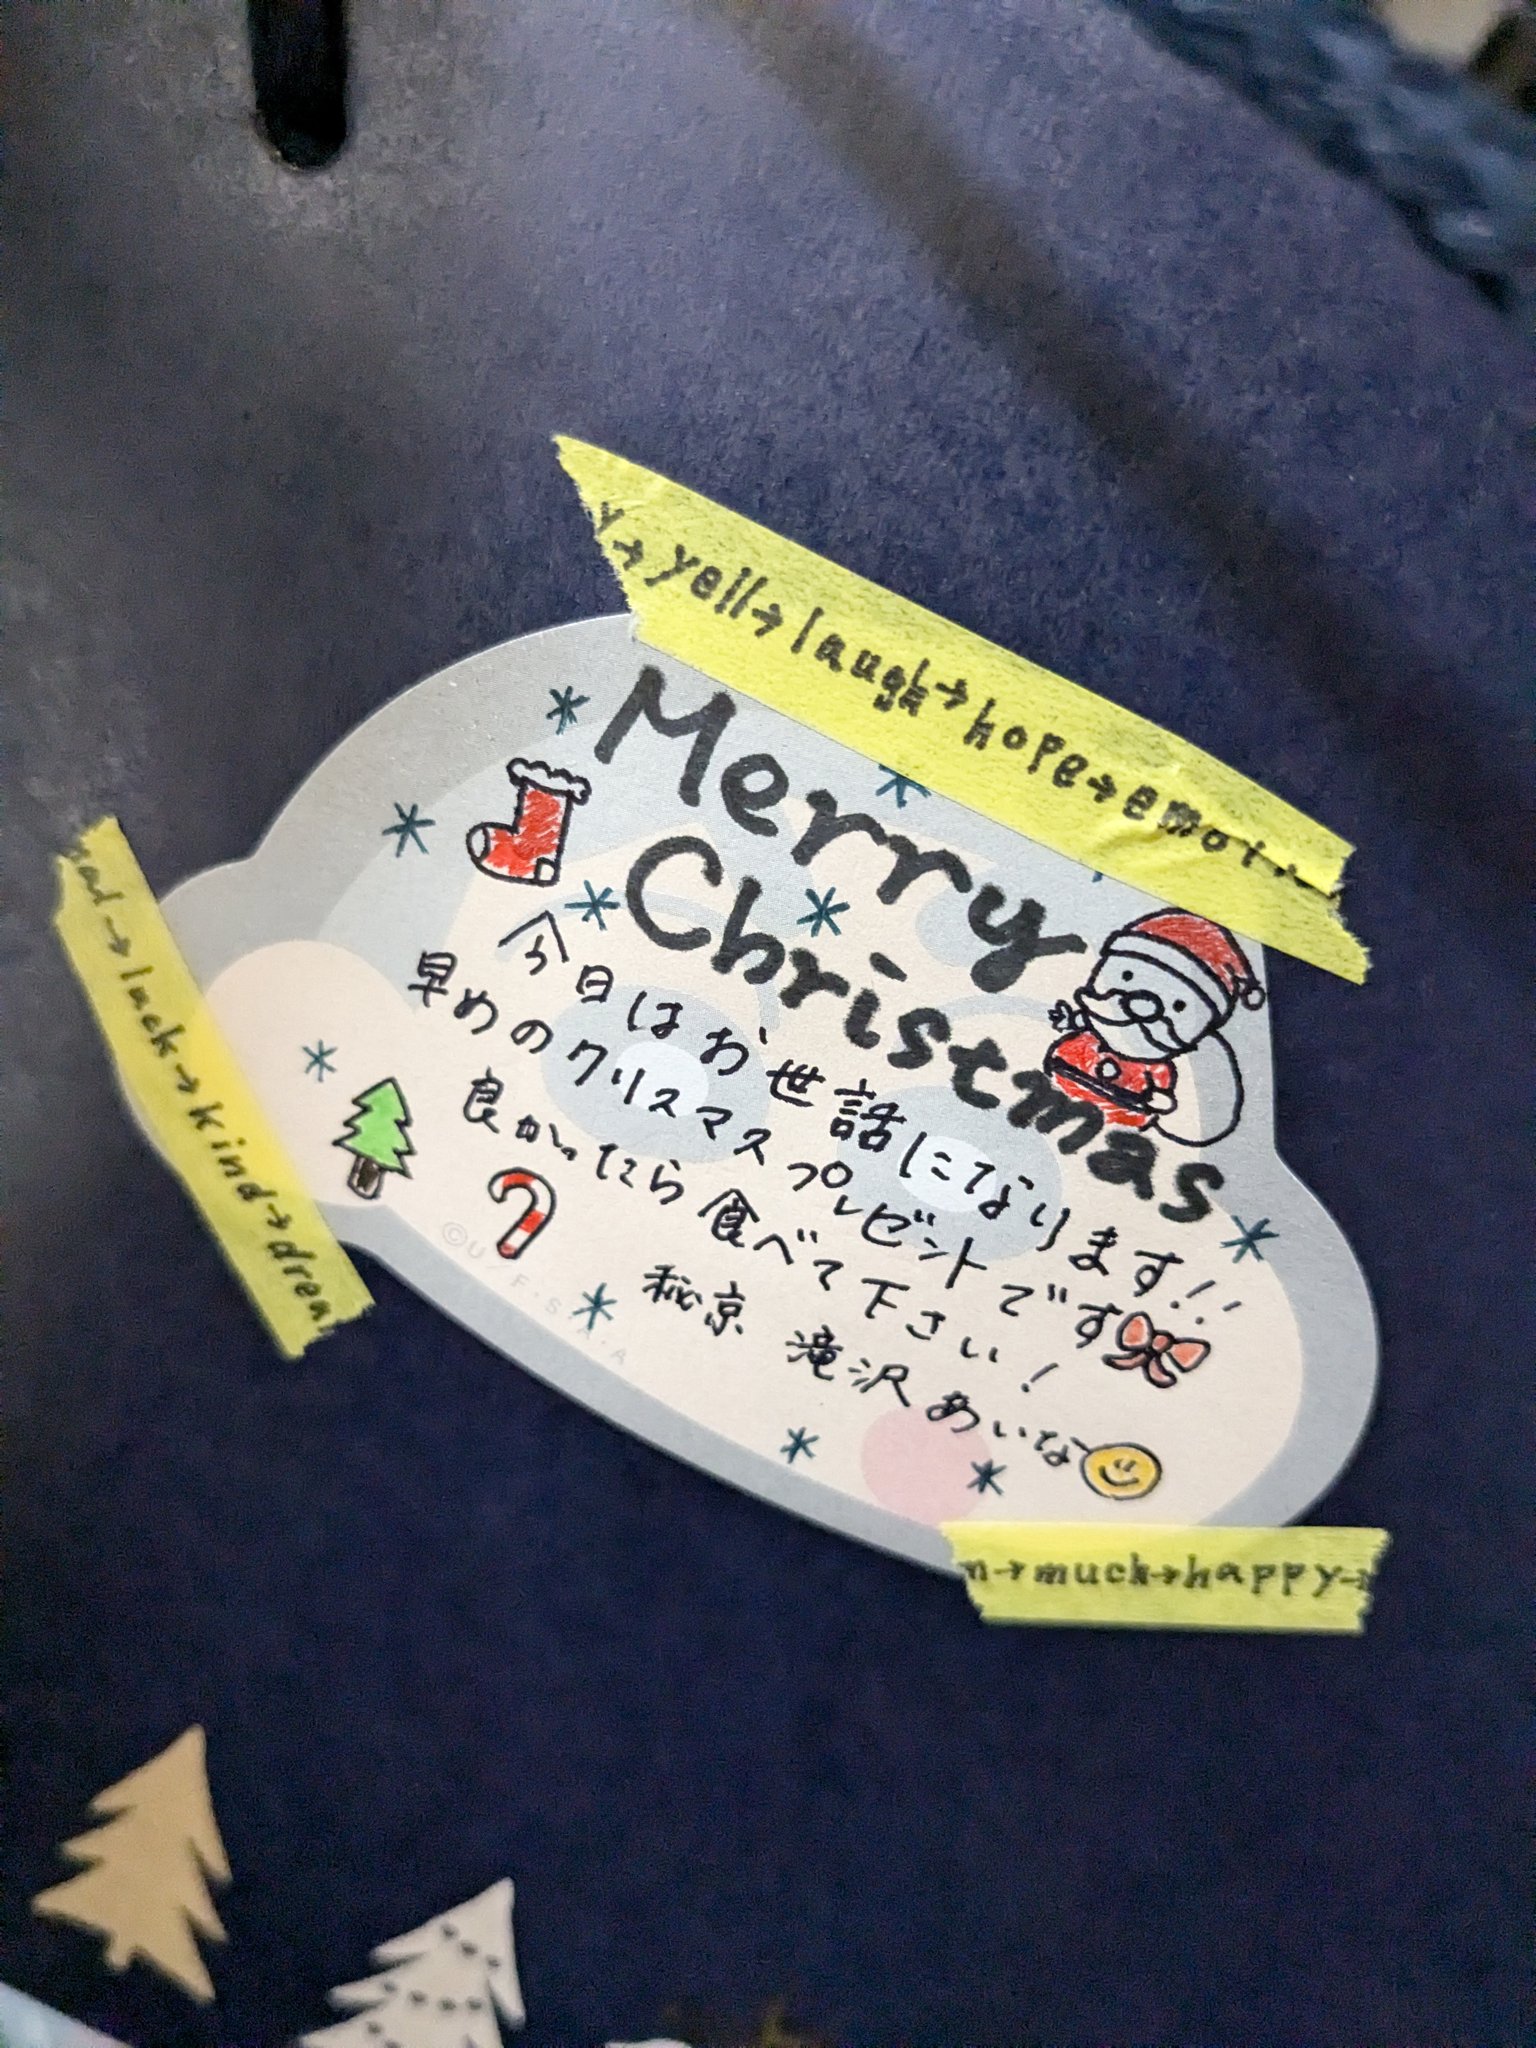 y→yell→laugh→hope→emoti
Merry
Christmas
今日はお世話になります!!
早めのクリスマスプレゼントです
良かったら食べて下さい!
秘京 滝沢あいな
→luck→kind→drea
©U/F.S.A.A
m→much→happy→